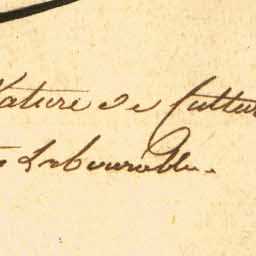 Nature de Cultur
Labourable.